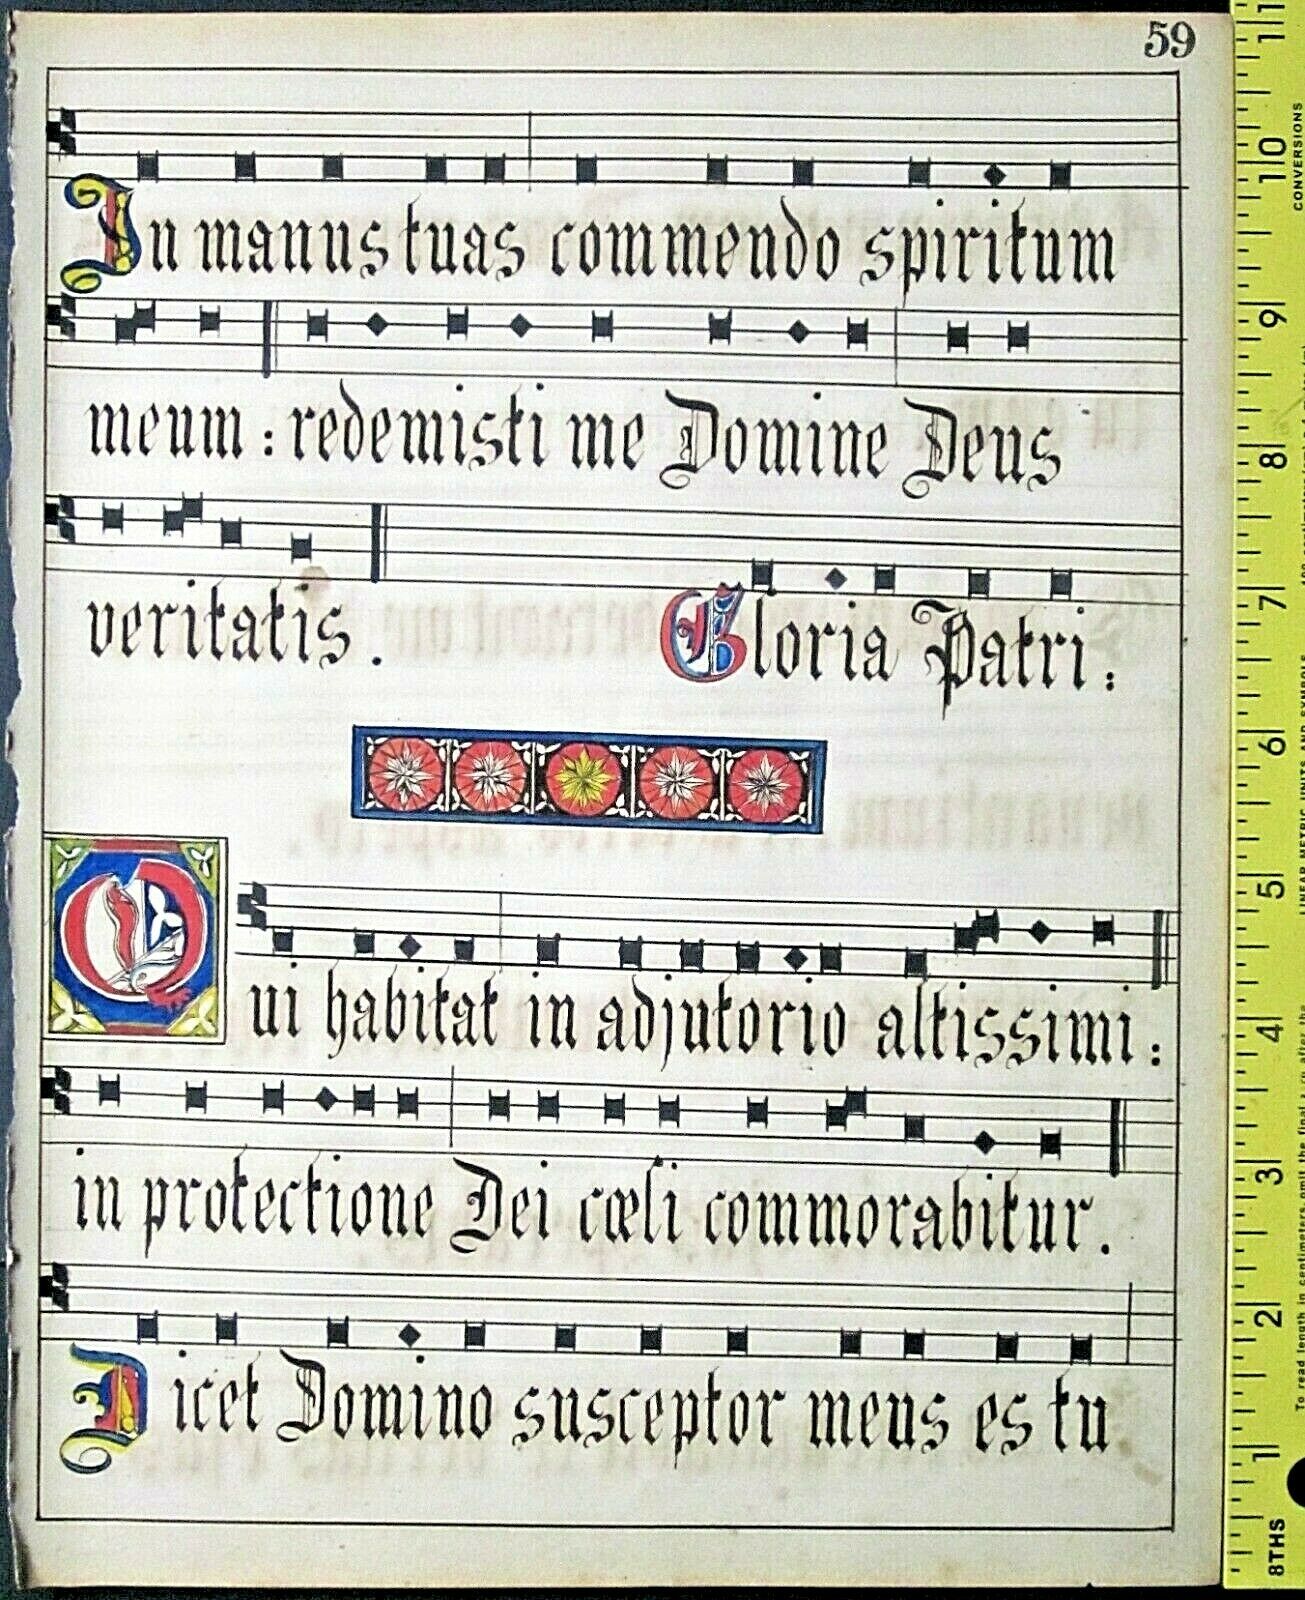 59
In manus tuas commendo spiritum
meum : redemisti me Domine Deus
veritatis .
Gloria Patri :
Qui habitat in adjutorio altissimi :
in protectione Dei cœli commorabitur .
Dicet Domino susceptor meus es tu
11
10
9
8
7
6
5
4
3
2
1
8THS
CONVERSIONS